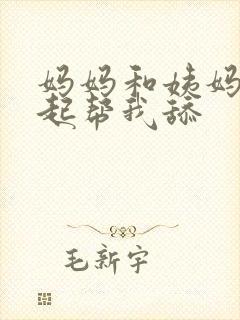 妈妈和姨妈
起帮我舔
毛新宇